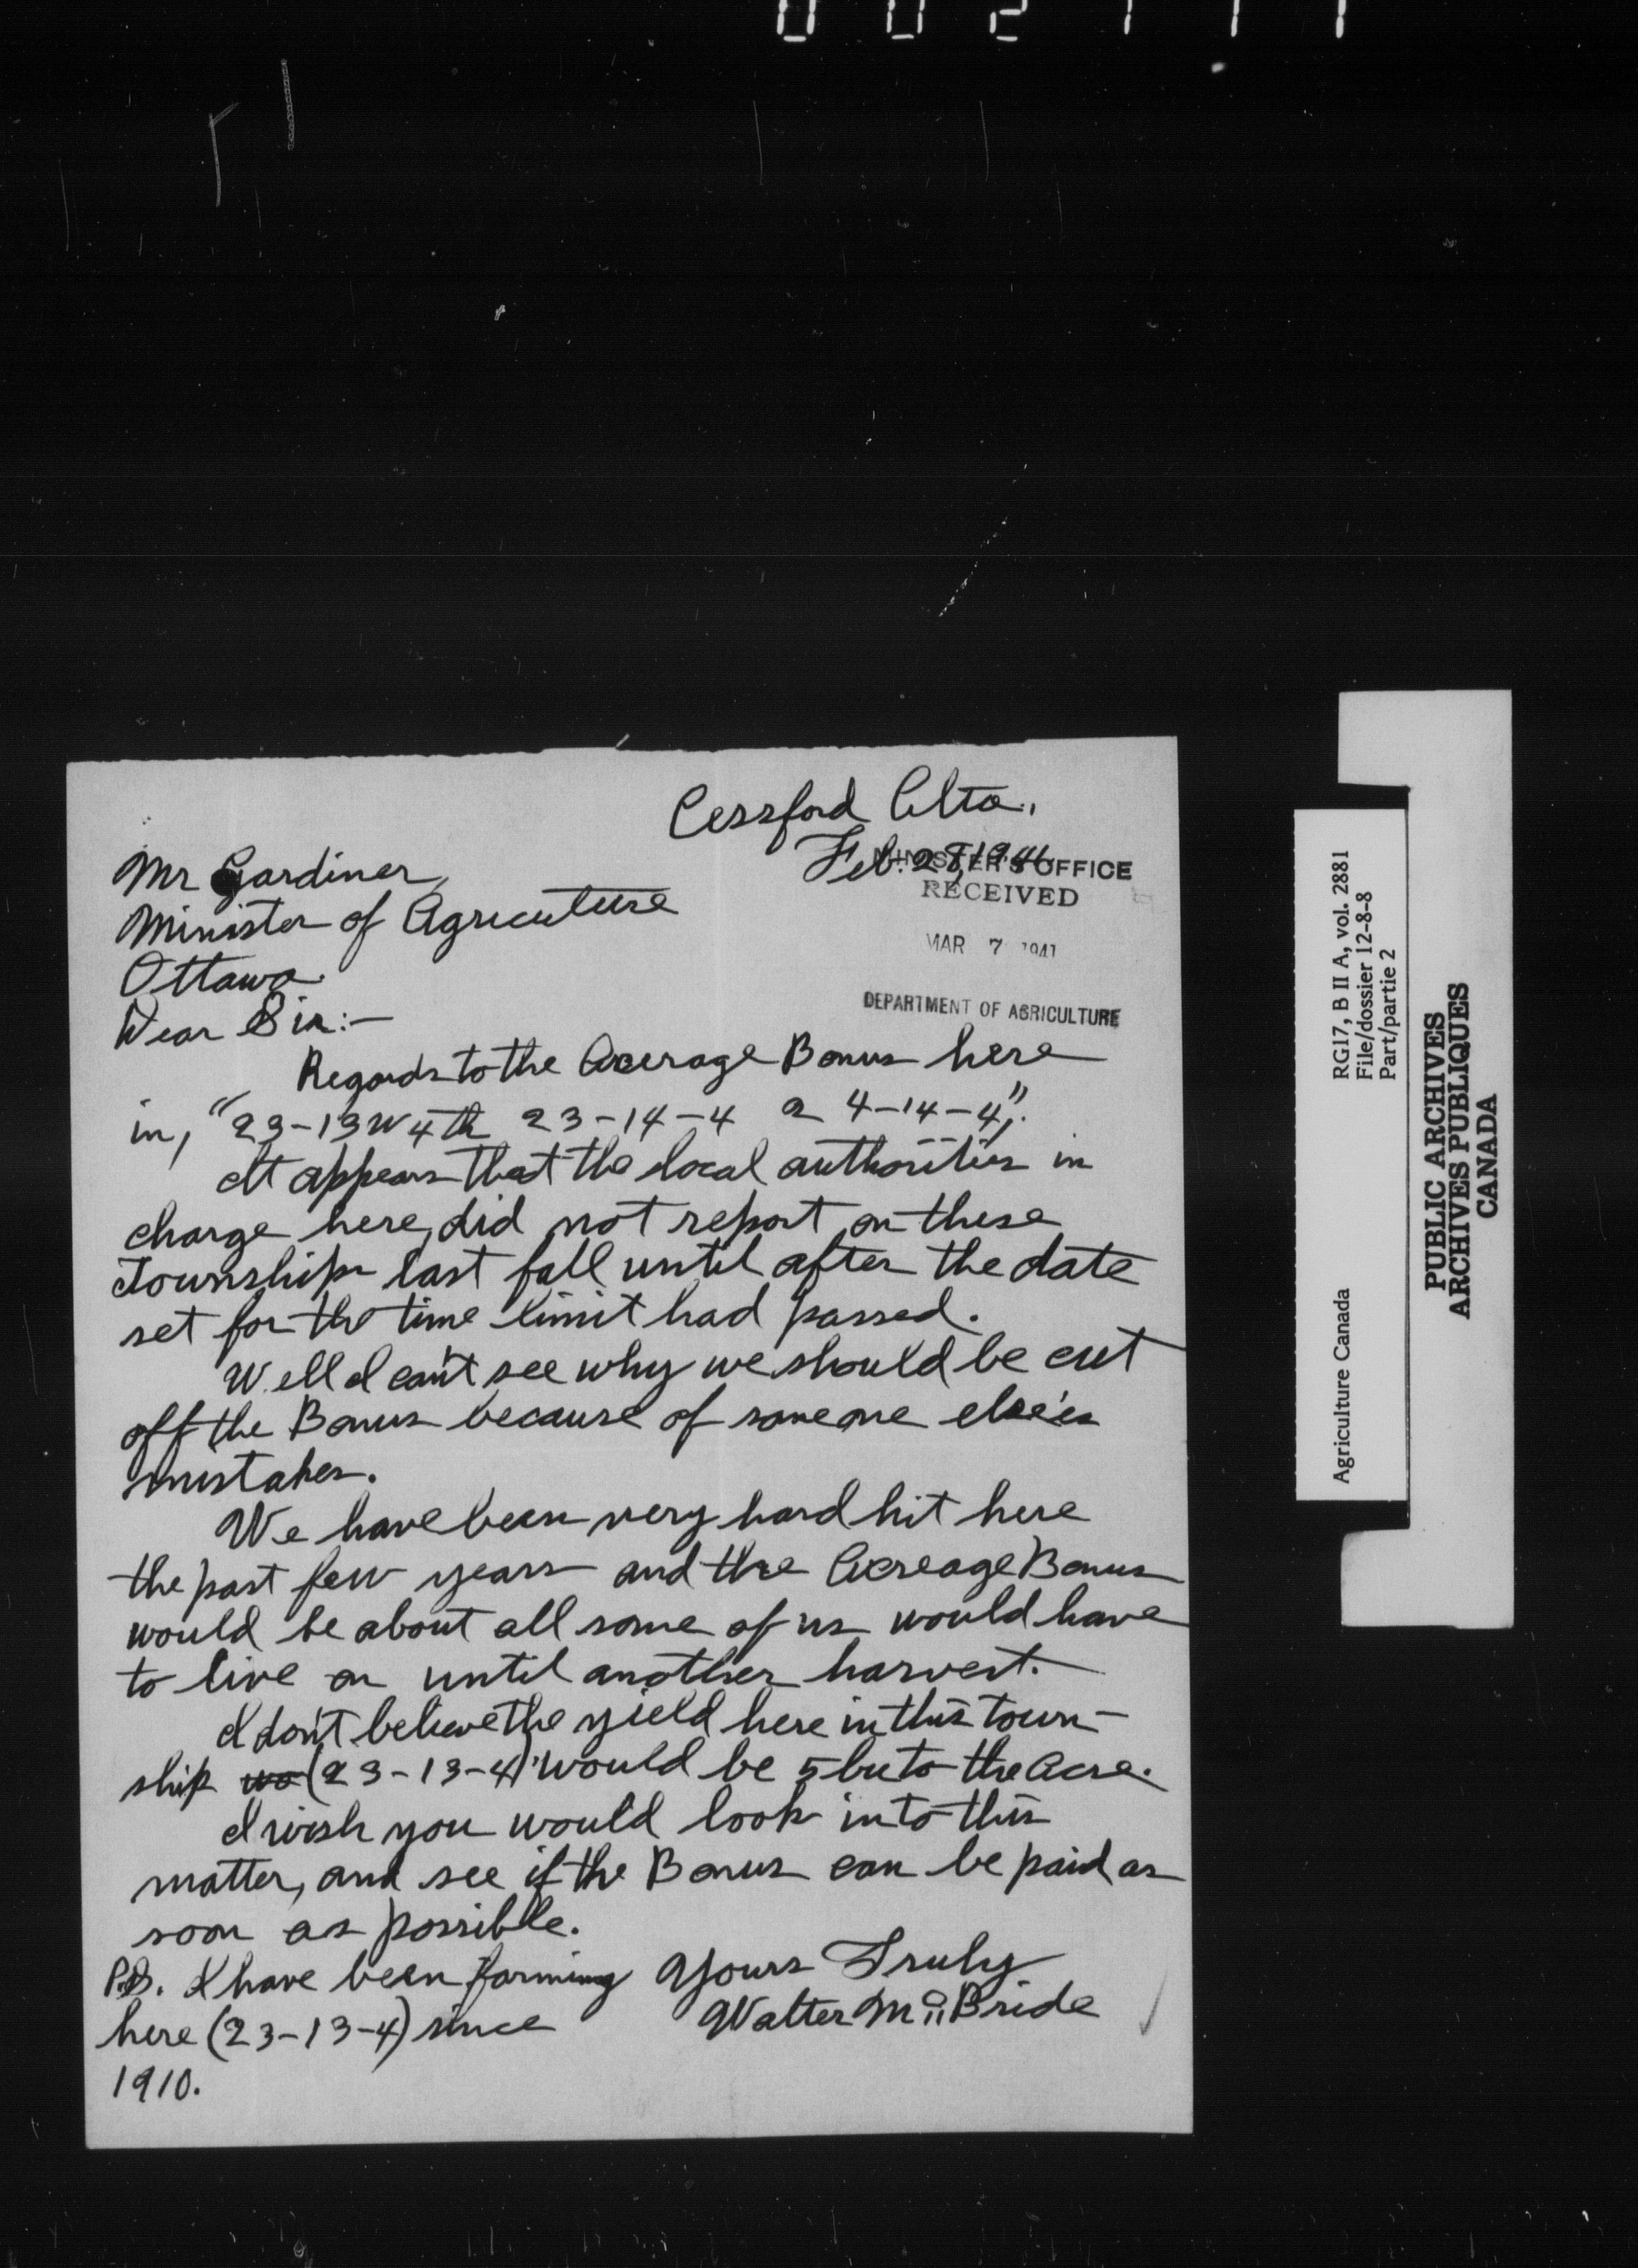 Cessford Alta.,
Feb. 28, 1941
MINISTER'S OFFICE
RECEIVED
MAR 7 1941
DEPARTMENT OF AGRICULTURE
Mr Gardiner,
Minister of Agriculture
Ottawa.
Dear Sir:—
Regards to the Acerage Bonus here
in, "23-13 W 4th 23-14-4 2 4-14-4".
It appears that the local authorities in
charge here, did not report on these
Townships last fall until after the date
set for the time limit had passed.
Well I can't see why we should be cut
off the Bonus because of someone else's
mistakes.
We have been very hard hit here
the past few years and the Acreage Bonus
would be about all some of us would have
to live on until another harvest.
I don't believe the yield here in this town-
ship wo (23-13-4) would be 5 bu to the acre.
I wish you would look into this
matter, and see if the Bonus can be paid as
soon as possible.
Yours Truly
Walter McBride
P.S. I have been farming
here (23-13-4) since
1910.
RG17, B II A, vol. 2881
File/dossier 12-8-8
Part/partie 2
Agriculture Canada
PUBLIC ARCHIVES
ARCHIVES PUBLIQUES
CANADA